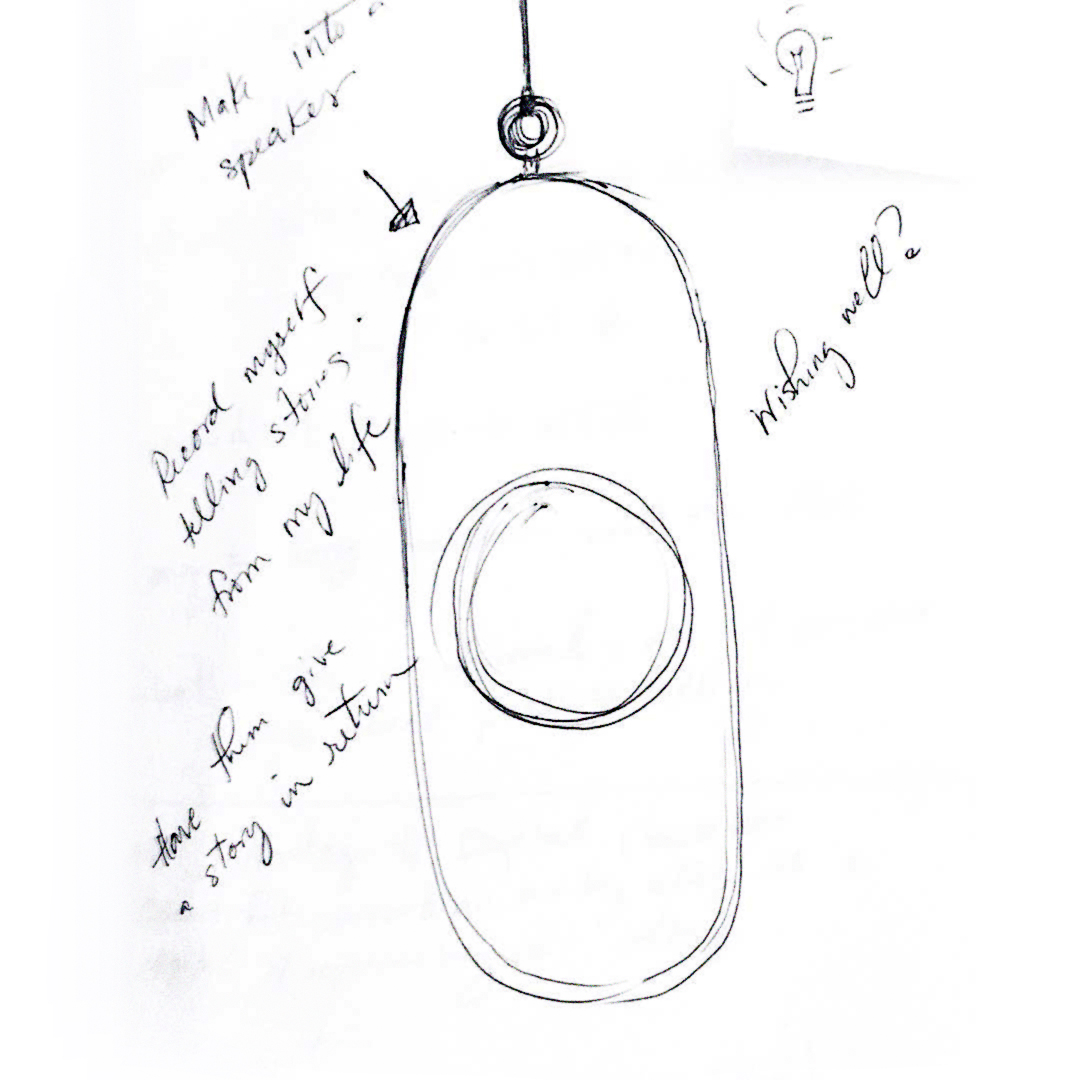 Make into a
speaker
Record myself
telling stories.
from my life
Have them give
a story in return
Wishing well?